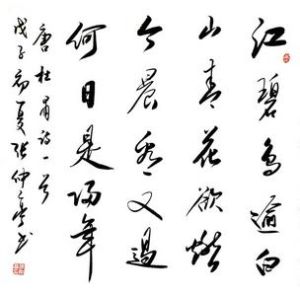 江碧鸟逾白
山青花欲燃
今晨看又過
何日是归年
唐杜甫诗一首
戊子初夏张仲亭书